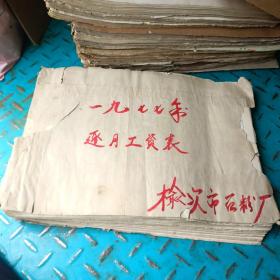 一九七七年
逐月工资表
榆次市石粉厂